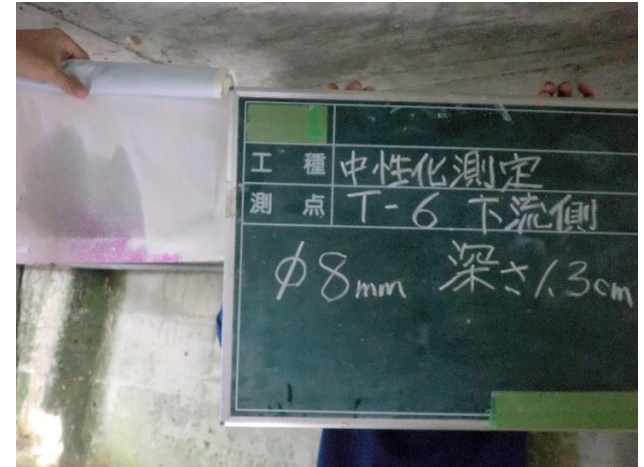 工種 中性化測定
測点 T-6 下流側
φ8mm 深さ1.3cm